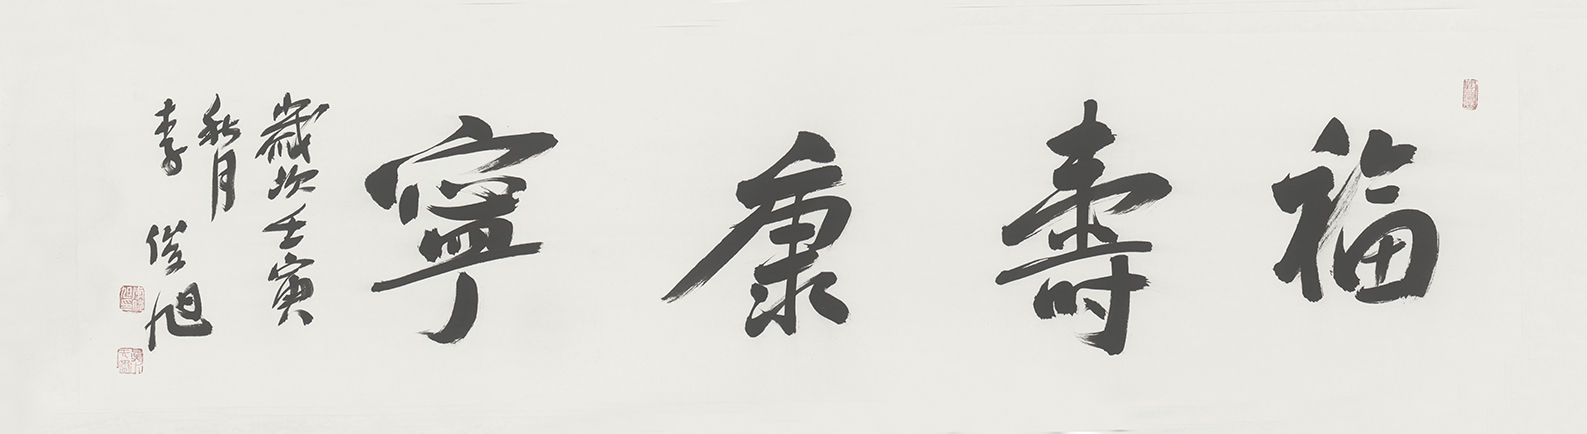 福壽康寧
歲次壬寅
秋月
李俊旭